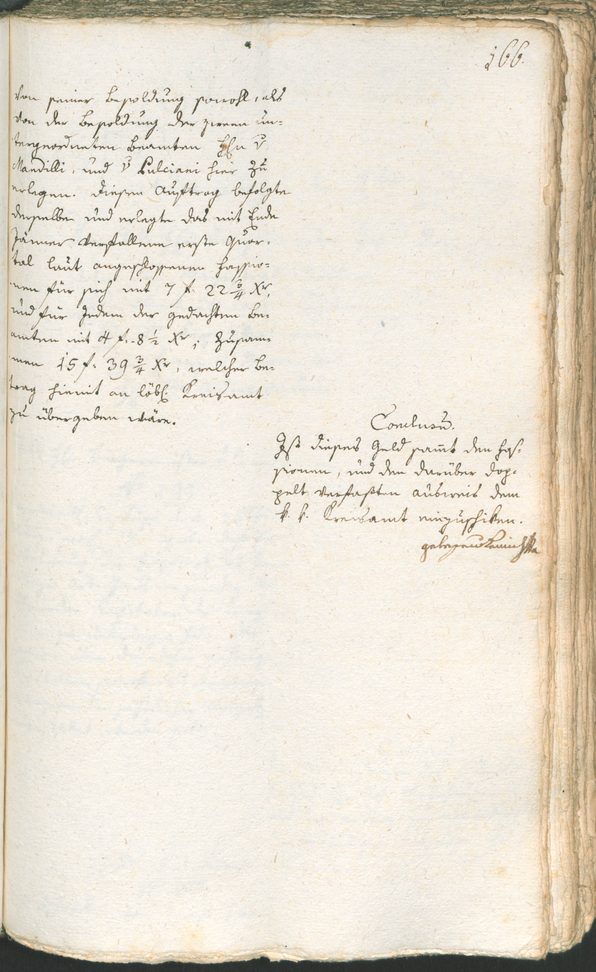 166.
von seiner Besoldung sowohl, als
von der Besoldung der zween un-
tergeordneten Beamten Hhn v
Mandilli, und v Pulciani hier zu
erlegen. Diesen Auftrag befolgte
derselbe und erlegte das mit Ende
Jänner verfallene erste Quar-
tal laut angeschlossenen Fassio-
nen für sich mit 7 f. 22 3/4 Xr,
und für jeden der gedachten Be-
amten mit 4 f. 8 1/2 Xr; zusam-
men 15 f. 39 3/4 Xr, welcher Be-
trag hiemit an löbl. Kreisamt
zu übergeben wäre.
Conclusum.
Ist dieses Geld samt den Fas-
sionen, und den darüber dop-
pelt verfaßten Ausweis dem
k. k. Kreisamt einzuschiken.
gelesen